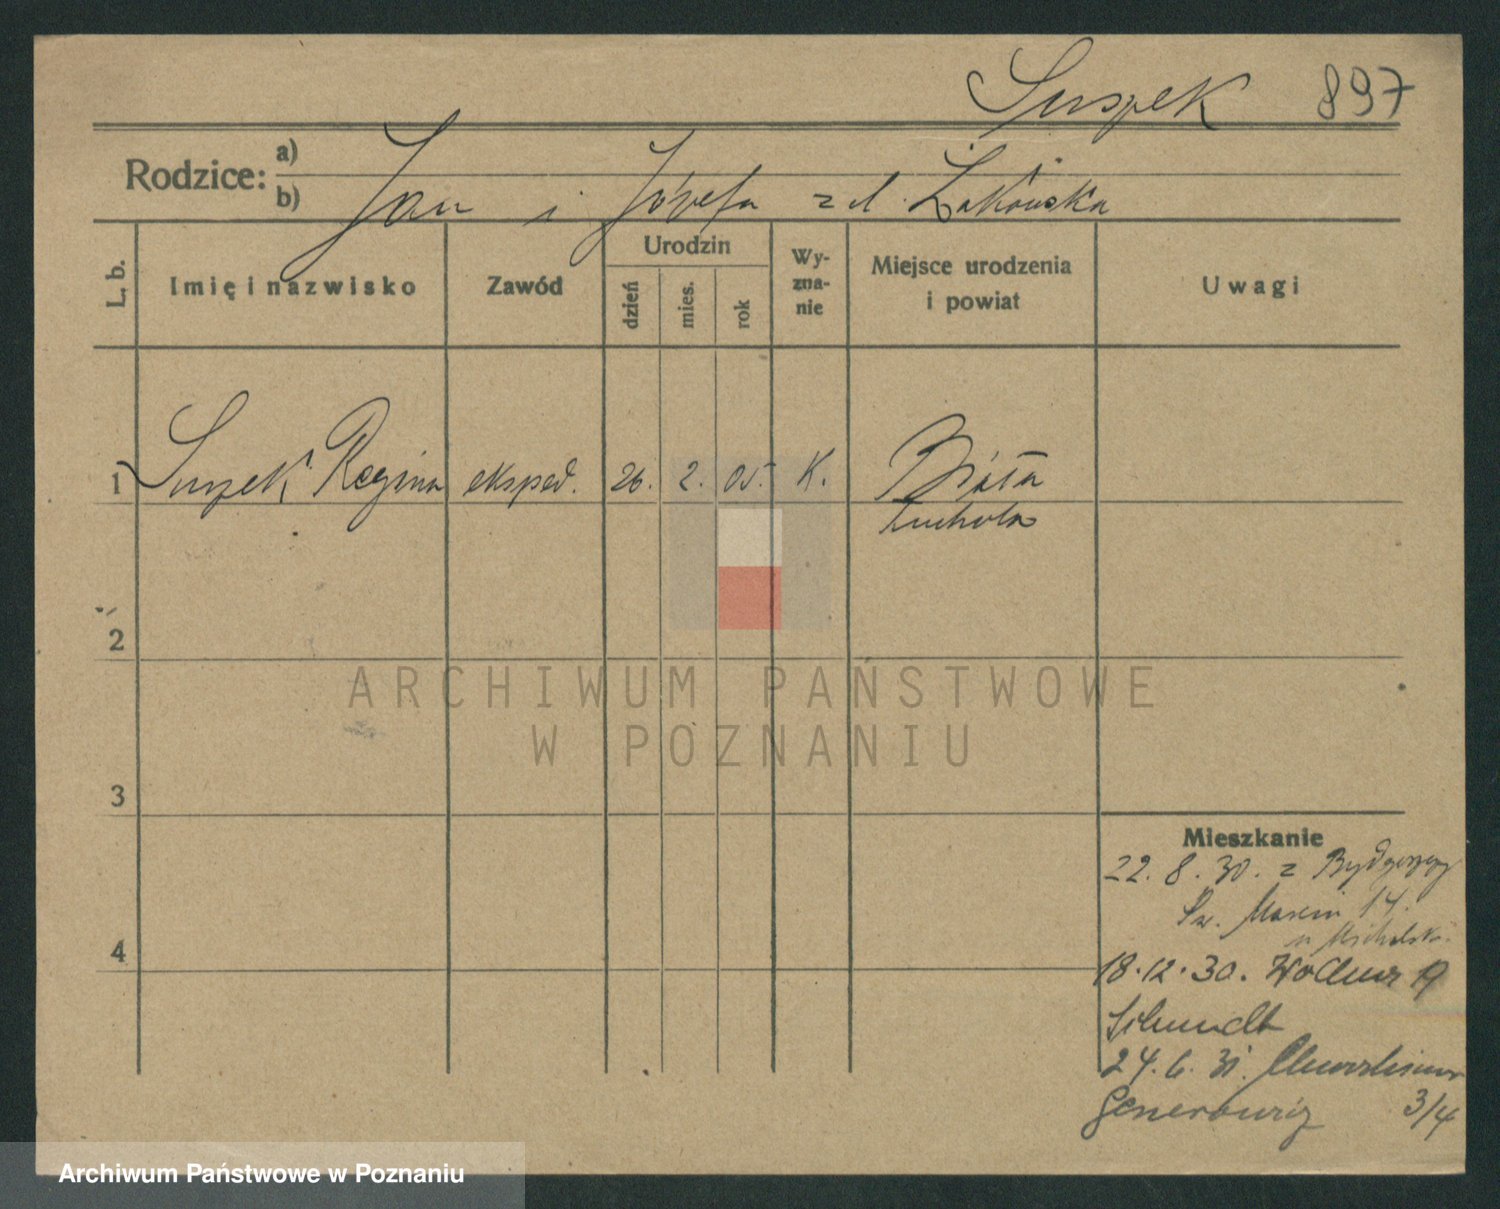 Suszek 897
Rodzice: a)
b) Jan i Józefa z d. Żakówska
L. b. Imię i nazwisko Zawód Urodzin dzień mies. rok Wyznanie Miejsce urodzenia i powiat Uwagi
1 Suszek Regina eksped. 26. 2. 05. K. Biała
Tuchola
2
ARCHIWUM PAŃSTWOWE
W POZNANIU
3
Mieszkanie
22. 8. 30. z Bydgoszczy
Św. Marcin 14.
u Michalsk.
4
18.12.30. 19
Schmidt
24. 6. 31.
3/4
Archiwum Państwowe w Poznaniu